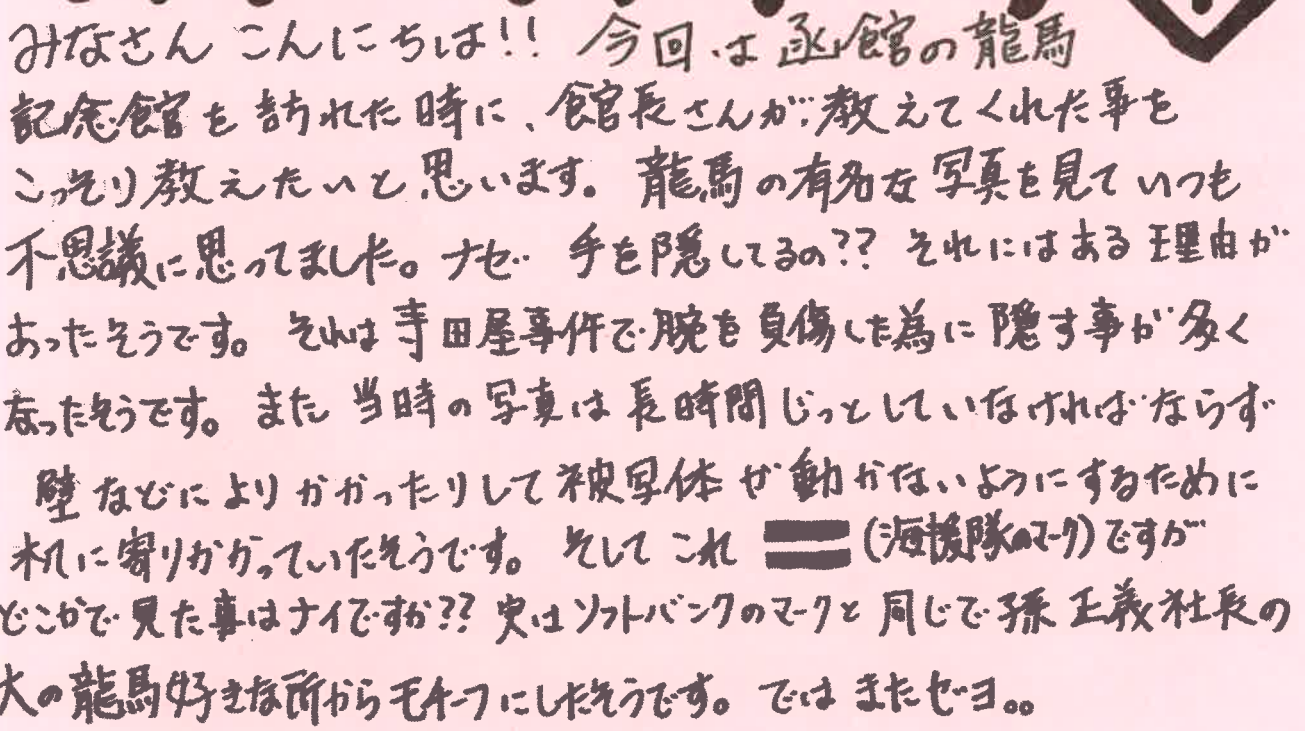 みなさん こんにちは!! 今回は函館の龍馬
記念館を訪れた時に、館長さんが教えてくれた事を
こっそり教えたいと思います。龍馬の有名な写真を見ていつも
不思議に思ってました。ナゼ 手を隠してるの?? それにはある理由が
あったそうです。それは寺田屋事件で腕を負傷した為に隠す事が多く
なったそうです。また当時の写真は長時間じっとしていなければならず
壁などによりかかったりして被写体が動かないようにするために
机に寄りかかっていたそうです。そしてこれ (海援隊のマーク)ですが
どこかで見た事はナイですか?? 実はソフトバンクのマークと同じで孫正義社長の
大の龍馬好きな所からモチーフにしたそうです。ではまたゼヨ。。